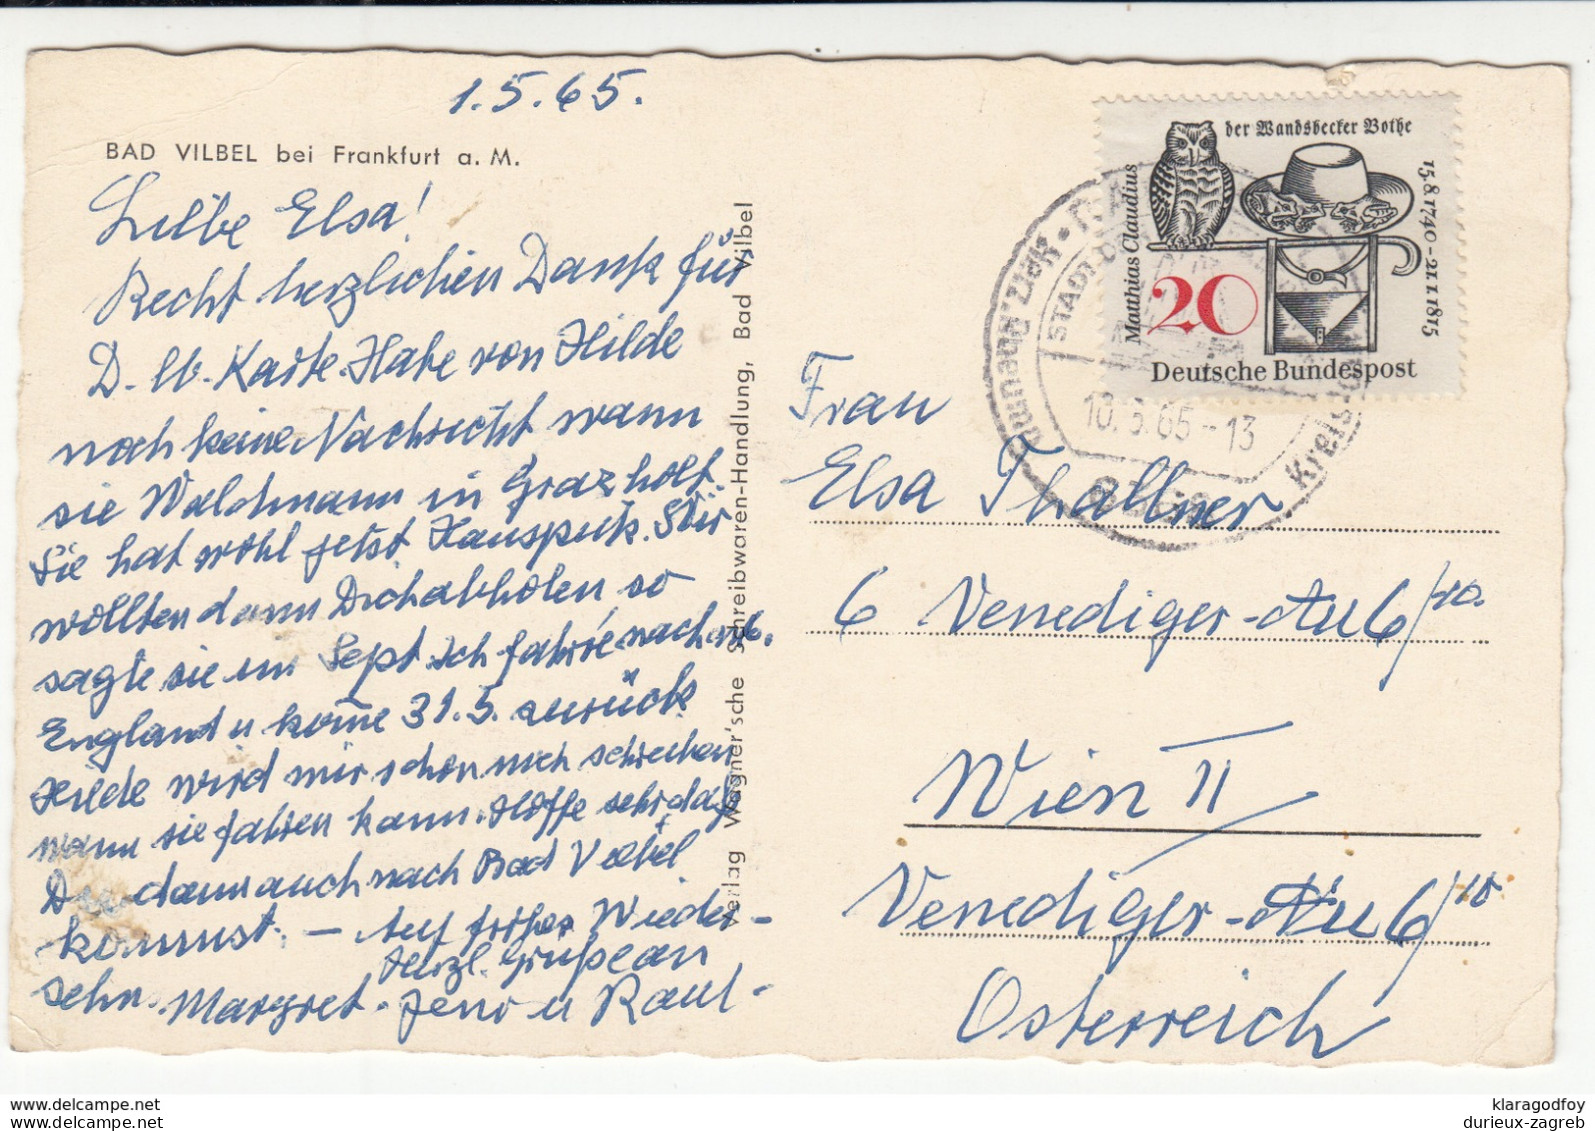 1.5.65.
BAD VILBEL bei Frankfurt a. M.
Liebe Elsa!
Recht herzlichen Dank für
D. lb. Karte. Habe von Hilde
noch keine Nachricht wann
sie Waldmann in Graz holt.
Sie hat wohl jetzt Hausputz. Wir
wollten dann Dich abholen so
sagte sie im Sept. Ich fahre nach
England u komme 31.5. zurück
Hilde wird mir schon noch schreiben
wann sie fahren kann. Hoffe sehr daß
Du dann auch nach Bad Vilbel
kommst. – Auf frohes Wieder-
sehn. Margret - Jenö u Raul -
Herzl. Grüße an
Verlag Wagner'sche Schreibwaren-Handlung, Bad Vilbel
der Wandsbecker Bothe
Matthias Claudius
15.8.1740-21.1.1815
20
Deutsche Bundespost
10.5.65-13
Frau
Elsa Thallner
6 Venediger-Au 6/10.
Wien II
Venediger-Au 6/10
Österreich
klaragodfoy
durieux-zagreb